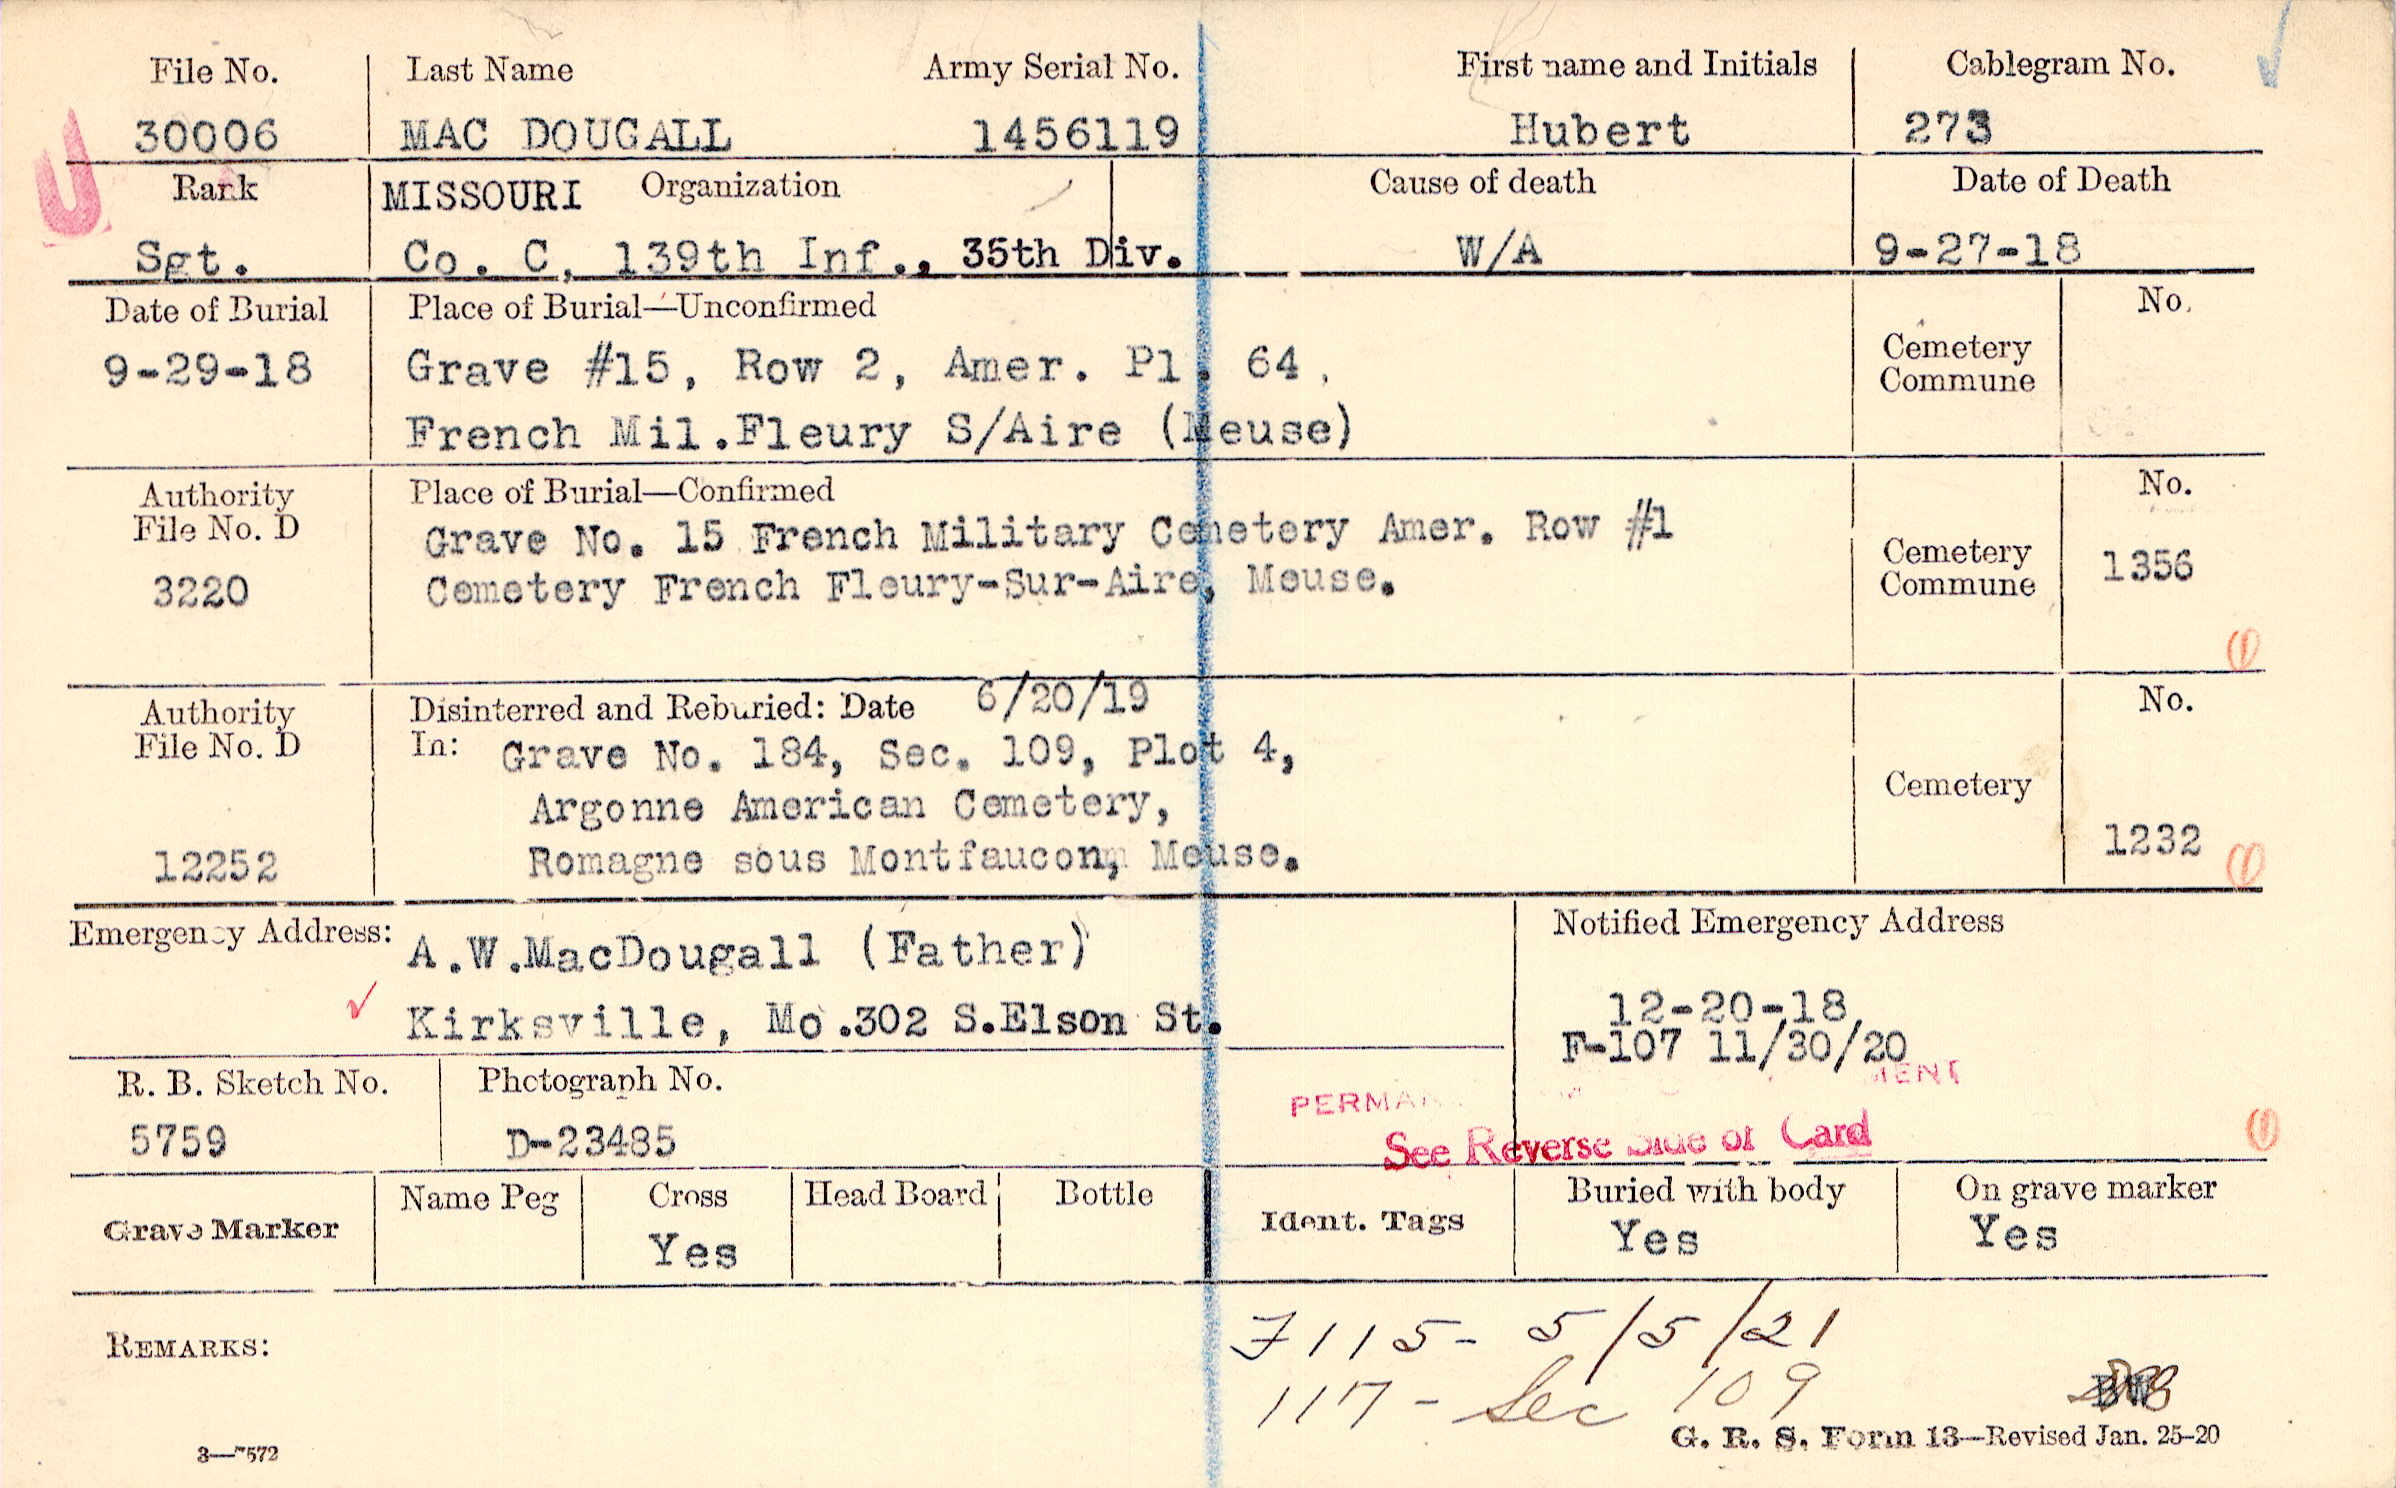 File No. Last Name Army Serial No. First name and Initials Cablegram No.
30006 MAC DOUGALL 1456119 Hubert 273
Rank MISSOURI Organization Cause of death Date of Death
Sgt. Co. C, 139th Inf., 35th Div. W/A 9-27-18
Date of Burial Place of Burial—Unconfirmed No.
9-29-18 Grave #15, Row 2, Amer. Pl. 64, Cemetery
Commune
French Mil.Fleury S/Aire (Meuse)
Authority Place of Burial—Confirmed No.
File No. D Grave No. 15 French Military Cemetery Amer. Row #1
3220 Cemetery French Fleury-Sur-Aire, Meuse. Cemetery 1356
Commune
Authority Disinterred and Reburied: Date 6/20/19 No.
File No. D In: Grave No. 184, Sec. 109, Plot 4,
Argonne American Cemetery, Cemetery
12252 Romagne sous Montfaucon, Meuse. 1232
Emergency Address: A.W.MacDougall (Father) Notified Emergency Address
Kirksville, Mo.302 S.Elson St. 12-20-18
F-107 11/30/20
R. B. Sketch No. Photograph No.
5759 D-23485 See Reverse Side of Card
Grave Marker Name Peg Cross Head Board Bottle Ident. Tags Buried with body On grave marker
Yes Yes Yes
REMARKS: F115- 5/5/21
117- Sec 109
3—7572 G. R. S. Form 13—Revised Jan. 25-20